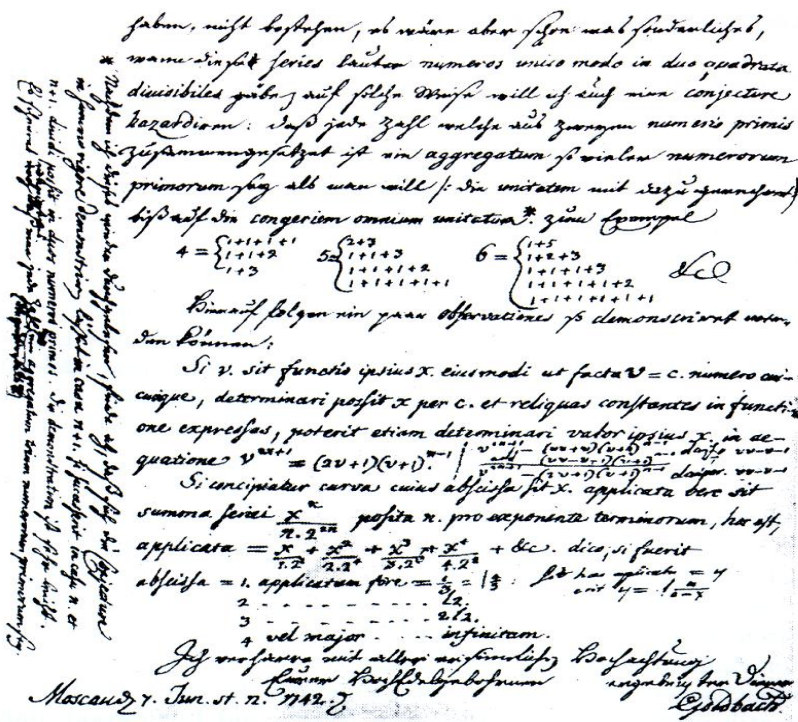 haben, nicht bestehen, es wäre aber schon was sonderliches,
wann diese series lauter numeros unico modo in duo quadrata
divisibiles gäbe, auf solche Weise will ich auch eine conjecture
hazardiren: daß jede Zahl welche aus zweyen numeris primis
zusammengesetzet ist ein aggregatum so vieler numerorum
primorum sey als man will /: die unitatem mit dazu gerechnet
biß auf die congeriem omnium unitatum*. zum Exempel
4 = { 1+1+1+1 5 = { 2+3 6 = { 1+5
1+1+2 1+1+3 1+2+3
1+3 1+1+1+2 1+1+1+3
1+1+1+1+1 1+1+1+1+2
1+1+1+1+1+1 &c
Hierauf folgen ein paar observationes so demonstriret wer-
den können:
Si v. sit functio ipsius x. eiusmodi ut facta v = c. numero cui-
cunque, determinari possit x per c. et reliquas constantes in functi-
one expressas, poterit etiam determinari valor ipsius x. in ae-
quatione v^2n+1 = (2v+1)(v+1)^n-1
Si concipiatur curva cuius abscissa sit x. applicata vero sit
summa seriei x^n/n.2^2n posita n. pro exponente terminorum, hoc est,
applicata = x/1.2^2 + x^2/2.2^4 + x^3/3.2^6 + x^4/4.2^8 + &c. dico, si fuerit
abscissa = 1. applicatam fore = l 4/3
2 - - - - - - - - l2.
3 - - - - - - - - 2l2.
4 vel major - - - - infinitam.
Ich verharre mit aller ersinnlichen Hochachtung
Eurer Hochedelgebohrnen ergebenster Diener
Moscau d. 7. Jun. st. n. 1742. Goldbach.
* Nachdem ich dieses wieder durchgelesen, finde ich, daß sich die Conjecture
in summo rigore demonstriren läßet in casu n+1. si successerit in casu n. et
n+1. dividi possit in duos numeros primos. Die Demonstration ist sehr leicht.
Es scheinet wenigstens, daß eine jede Zahl ein aggregatum trium numerorum primorum sey.